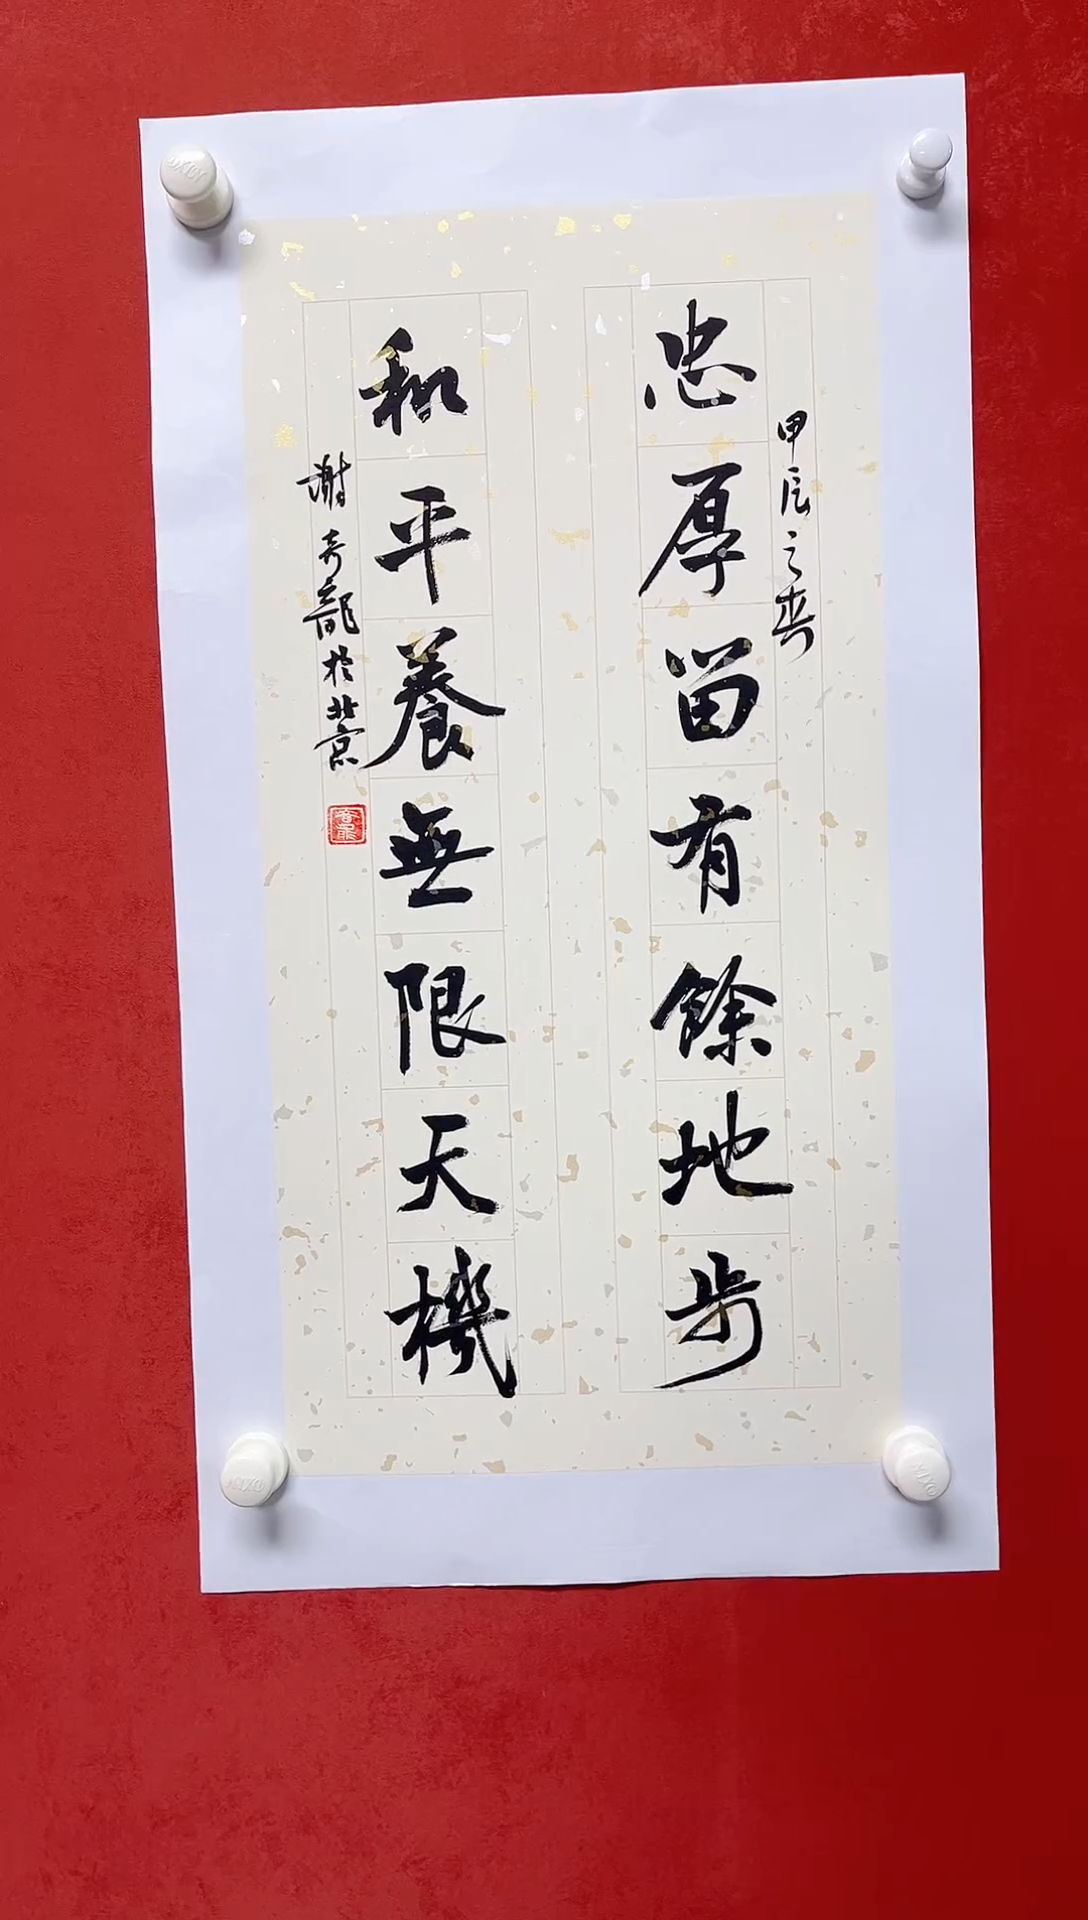 甲辰之春
忠厚留有餘地步
和平養無限天機
謝奇龍於北京